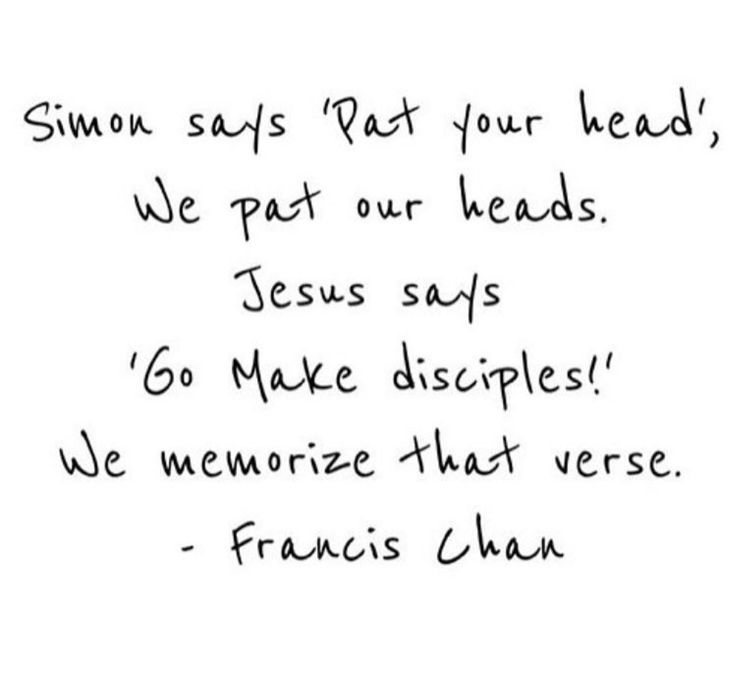 Simon says 'Pat your head',
We pat our heads.
Jesus says
'Go Make disciples!'
We memorize that verse.
- Francis Chan